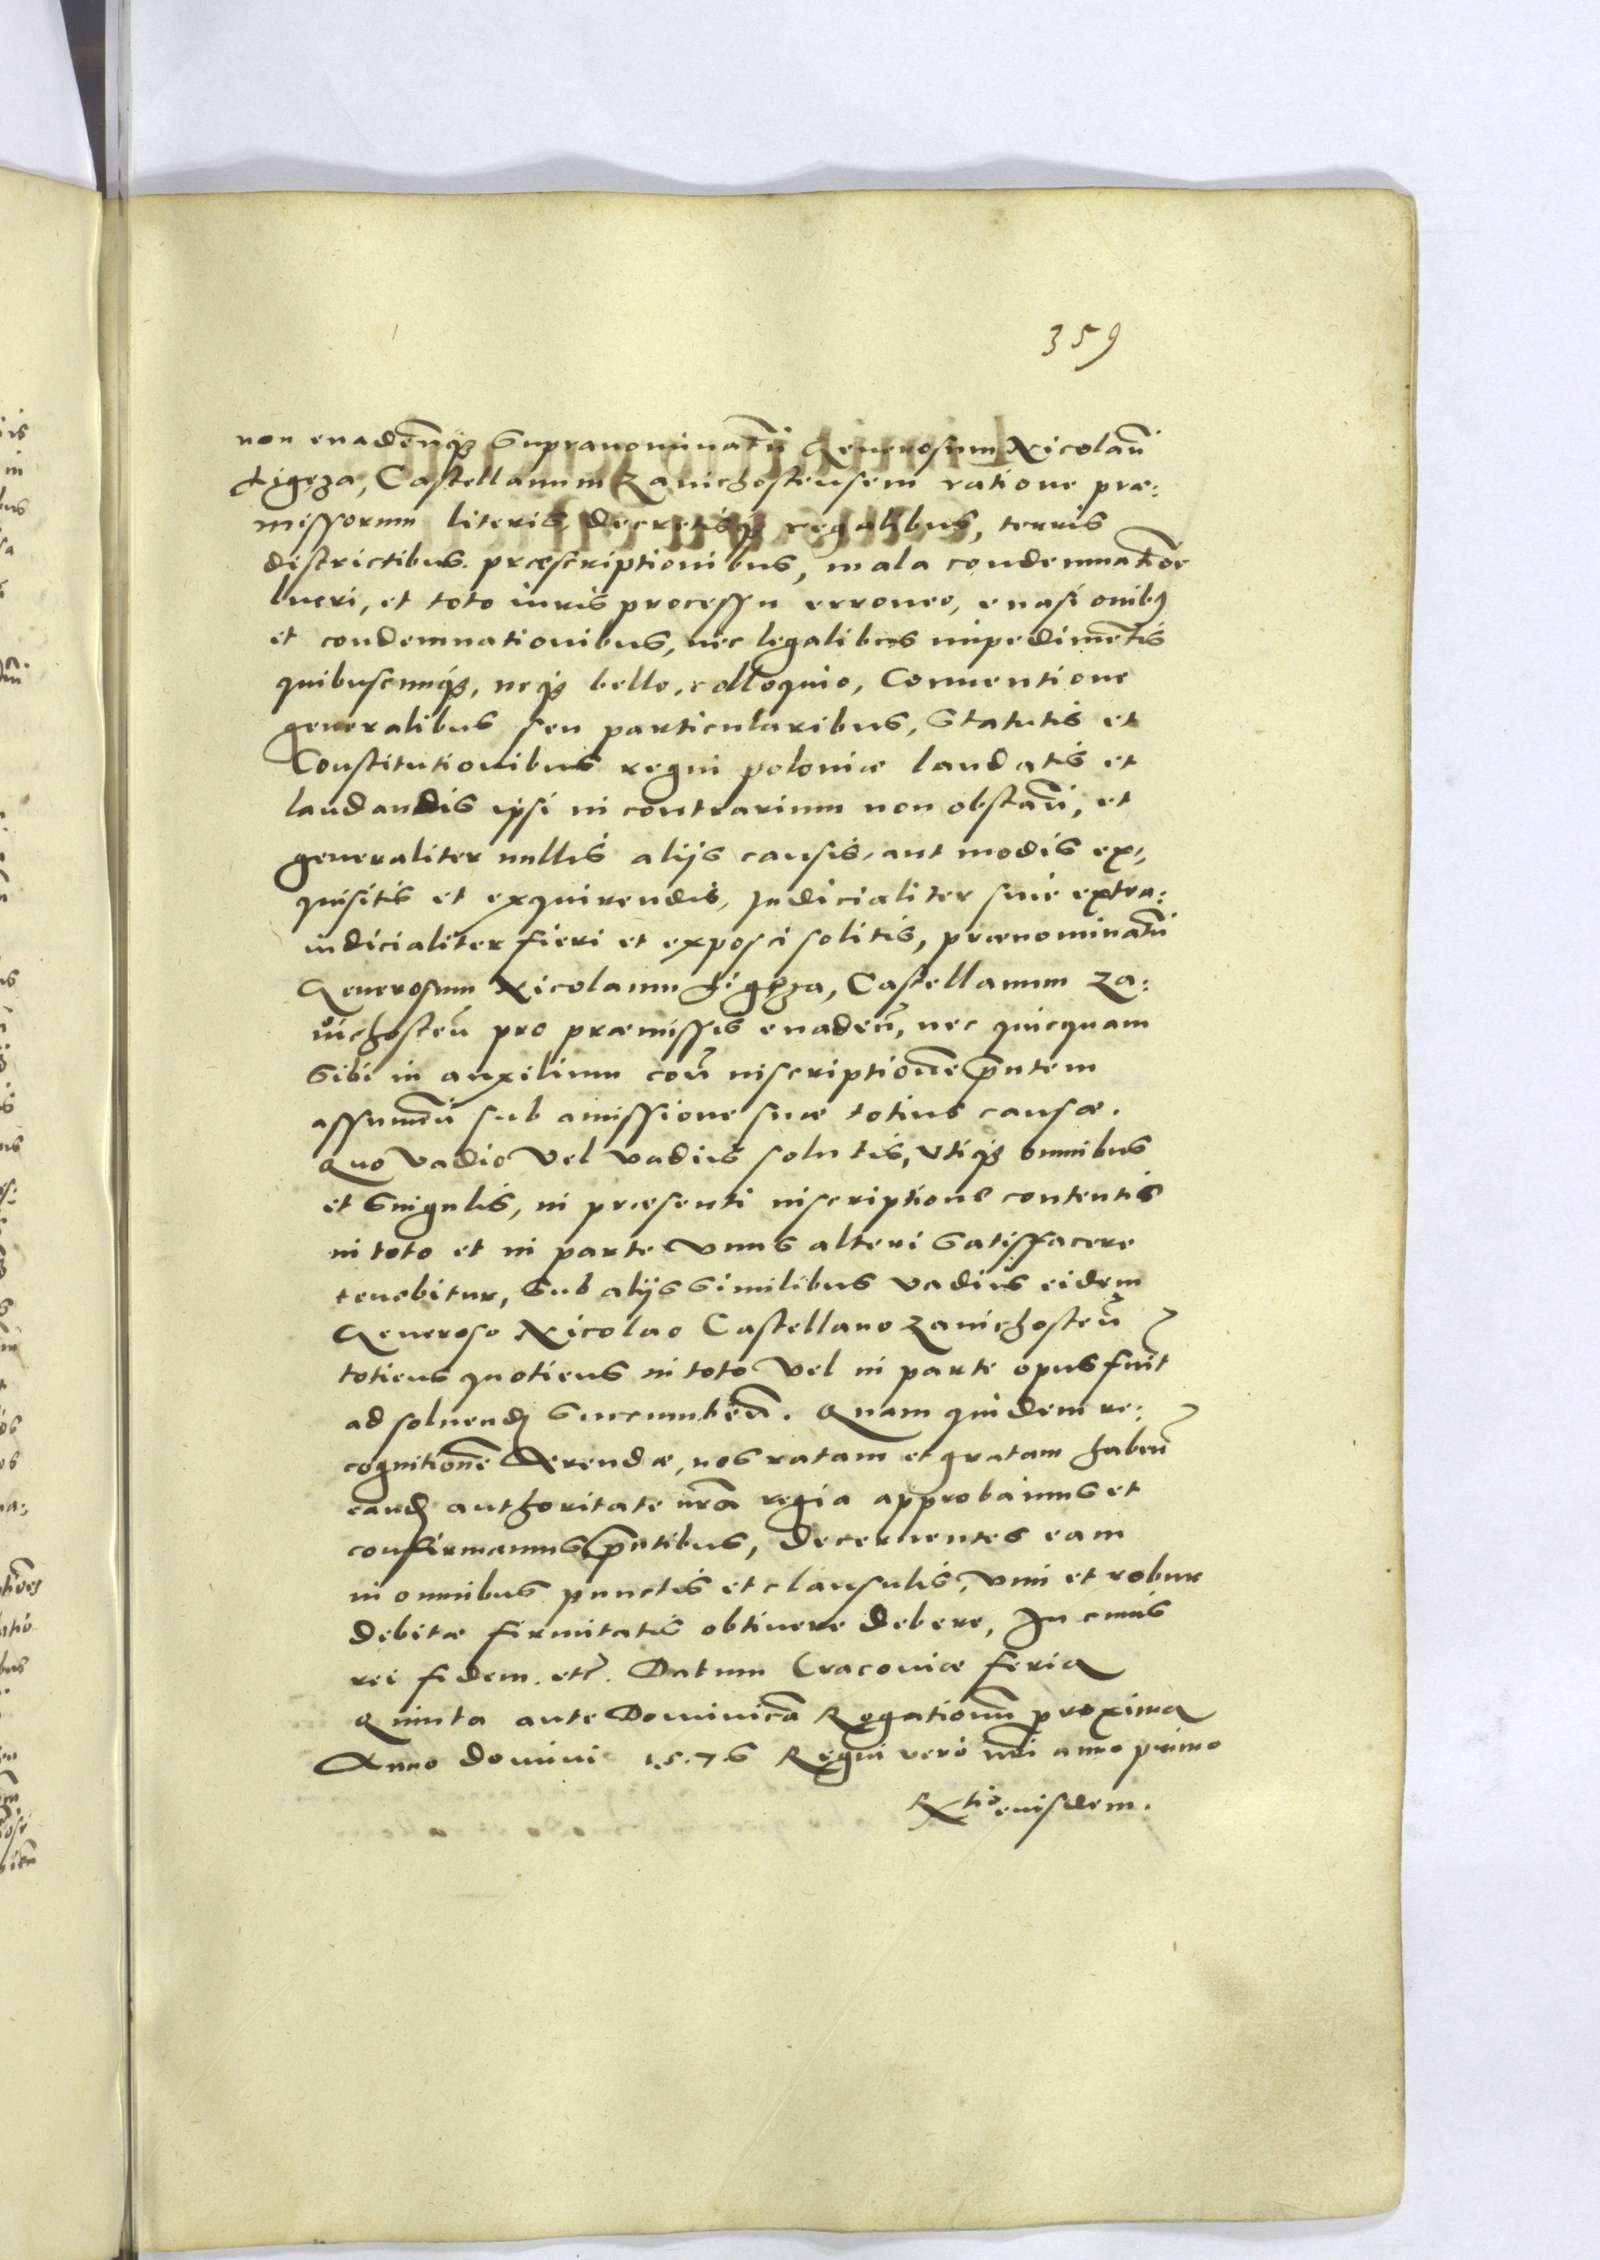 359
non euadeñ neq3 Supranominatũ Generosum Nicolaũ
Ligęza, Castellanum Zauichostensem ratione præ:
missorum literis, decretisq3 regalibus, terris
districtibus. præscriptionibus, mala condemnatōe
lueri, et toto iuris processu erroneo, euasionibꝫ
et condemnationibus, nec legalibus impedimẽtis
quibuscunq3, neq3 bello, colloquio, Conuentione
generalibus seu particularibus, Statutis et
Constitutionibus regni poloniæ laudatis et
laudandis ipsi in contrarium non obstañ, et
generaliter nullis alijs causis, aut modis ex:
quisitis et exquirendis, Judicialiter siue extra:
iudicialiter fieri et exposci solitis, prænominatũ
Generosum Nicolaum Ligęza, Castellanum Za:
uichosteñ pro præmissis euadeñ, nec quicquam
Sibi in auxilium coñ inscriptionẽ pñtem
assumeñ sub amissione suæ totius causæ.
Quo Vadio Vel Vadiis solutis, Vtiq3 omnibus
et Singulis, in præsenti inscriptione contentis
in toto et in parte Vnus alteri Satisfacere
tenebitur, Sub alijs Similibus Vadiis eidem
Generoso Nicolao Castellano Zauichosteñ
totiens quotiens in toto Vel in parte opus fuit
ad soluendꝫ Succumbeñ. Quam quidem re:
cognitionẽ Arendæ, nos ratam et gratam habeñ
eandꝫ authoritate nrã regia approbamus et
confirmamus pñtibus, decernentes eam
in omnibus punctis et clausulis, Vim et robur
debitæ firmitatis obtinere debere, In cuius
rei fidem. etc. Datum Cracouiæ feria
Quinta ante Dominicã Rogationũ proxima
Anno domini 1.5.76 Regni vero nri anno primo
Rtio eiusdem.